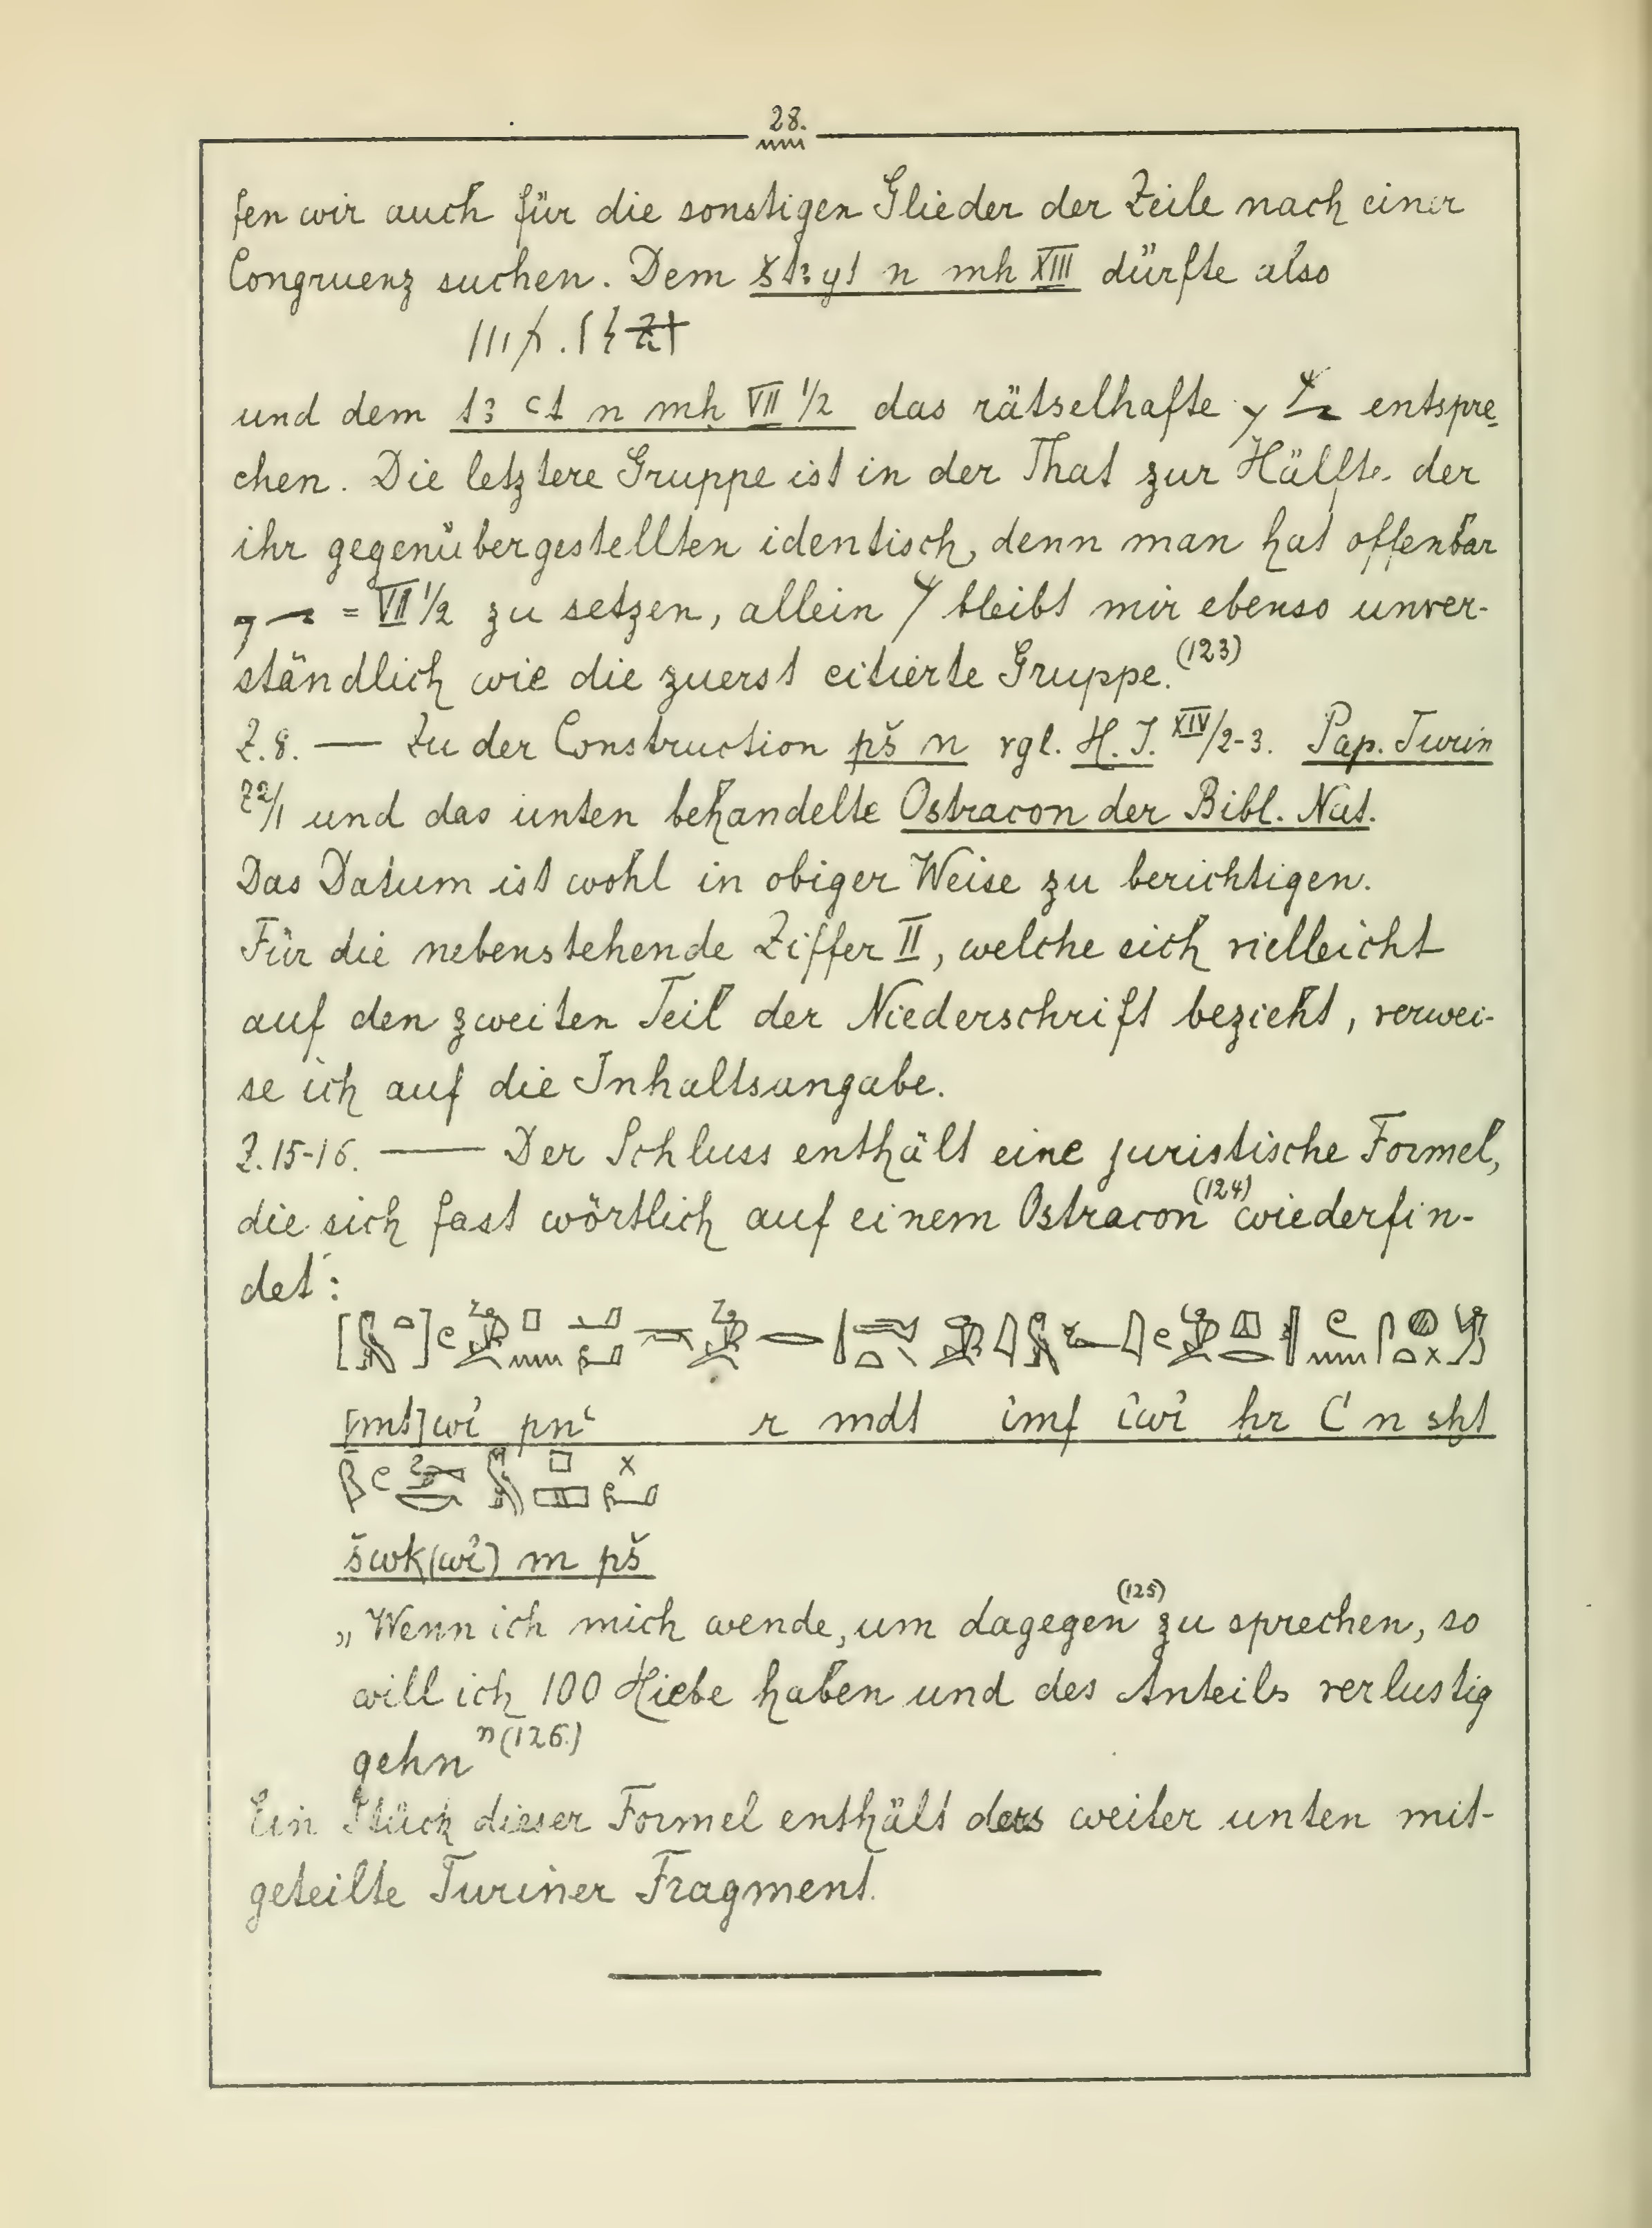 28.
fen wir auch für die sonstigen Glieder der Zeile nach einer
Congruenz suchen. Dem n mh XIII dürfte also
und dem t3 ct n mḥ VII 1/2 das rätselhafte entspre
chen. Die letztere Gruppe ist in der That zur Hälfte der
ihr gegenübergestellten identisch, denn man hat offenbar
= VII 1/2 zu setzen, allein bleibt mir ebenso unver-
ständlich wie die zuerst citierte Gruppe.(123)
Z.8. — Zu der Construction pš n vgl. H. I. XIV/2-3. Pap. Turin
22/1 und das unten behandelte Ostracon der Bibl. Nat.
Das Datum ist wohl in obiger Weise zu berichtigen.
Für die nebenstehende Ziffer II, welche sich vielleicht
auf den zweiten Teil der Niederschrift bezieht, verwei-
se ich auf die Inhaltsangabe.
Z.15-16. — Der Schluss enthält eine juristische Formel,
die sich fast wörtlich auf einem Ostracon (124) wiederfin-
det:
[mt]wỉ pnʿ r mdt ỉmf ỉwỉ ḥr C n sḫt
šwk(wỉ) m pš
„Wenn ich mich wende, um dagegen (125) zu sprechen, so
will ich 100 Hiebe haben und des Anteils verlustig
gehn" (126.)
Ein Stück dieser Formel enthält das weiter unten mit-
geteilte Turiner Fragment.